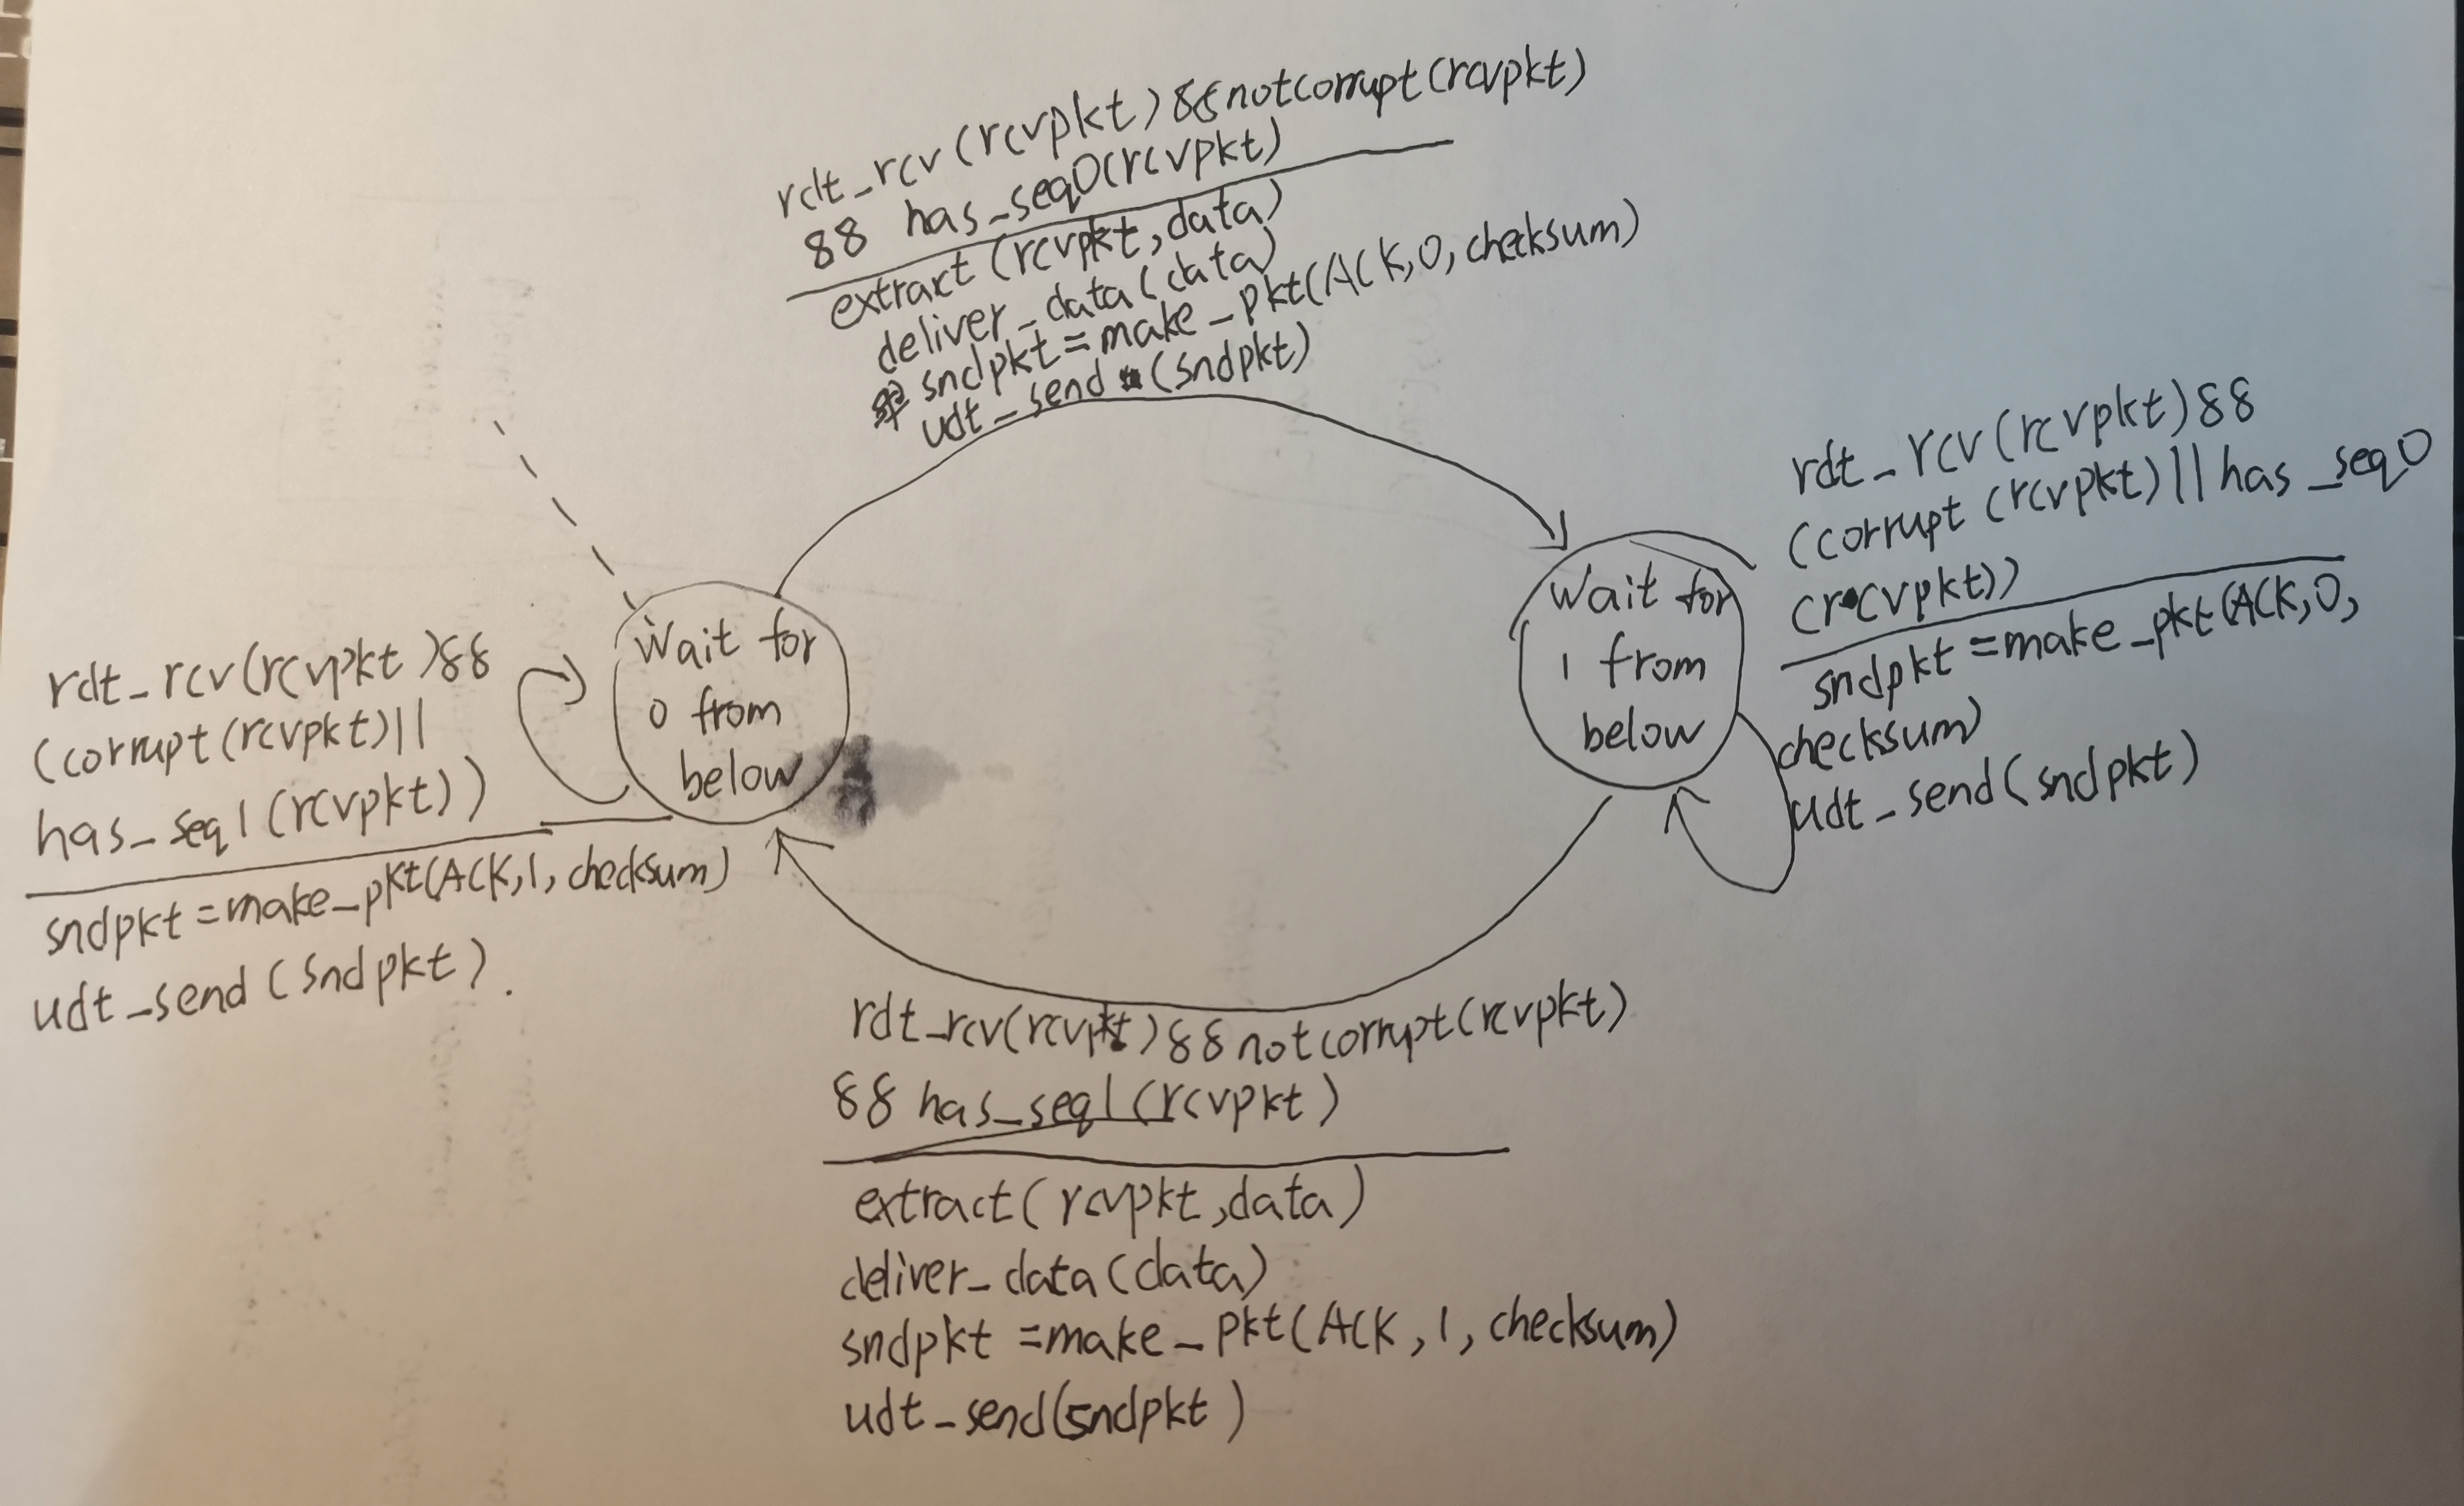 rdt_rcv(rcvpkt)&&notcorrupt(rcvpkt)
&& has_seq0(rcvpkt)
extract(rcvpkt,data)
deliver_data(data)
sndpkt=make_pkt(ACK,0,checksum)
udt_send(sndpkt)
rdt_rcv(rcvpkt)&&
(corrupt(rcvpkt)||has_seq0
(rcvpkt))
sndpkt=make_pkt(ACK,0,
checksum)
udt_send(sndpkt)
Wait for
1 from
below
Wait for
0 from
below
rdt_rcv(rcvpkt)&&
(corrupt(rcvpkt)||
has_seq1(rcvpkt))
sndpkt=make_pkt(ACK,1,checksum)
udt_send(sndpkt).
rdt_rcv(rcvpkt)&&notcorrupt(rcvpkt)
&& has_seq1(rcvpkt)
extract(rcvpkt,data)
deliver_data(data)
sndpkt=make_pkt(ACK,1,checksum)
udt_send(sndpkt)